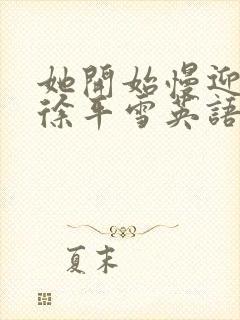 她開始慢迎
徐平雪英語
夏末